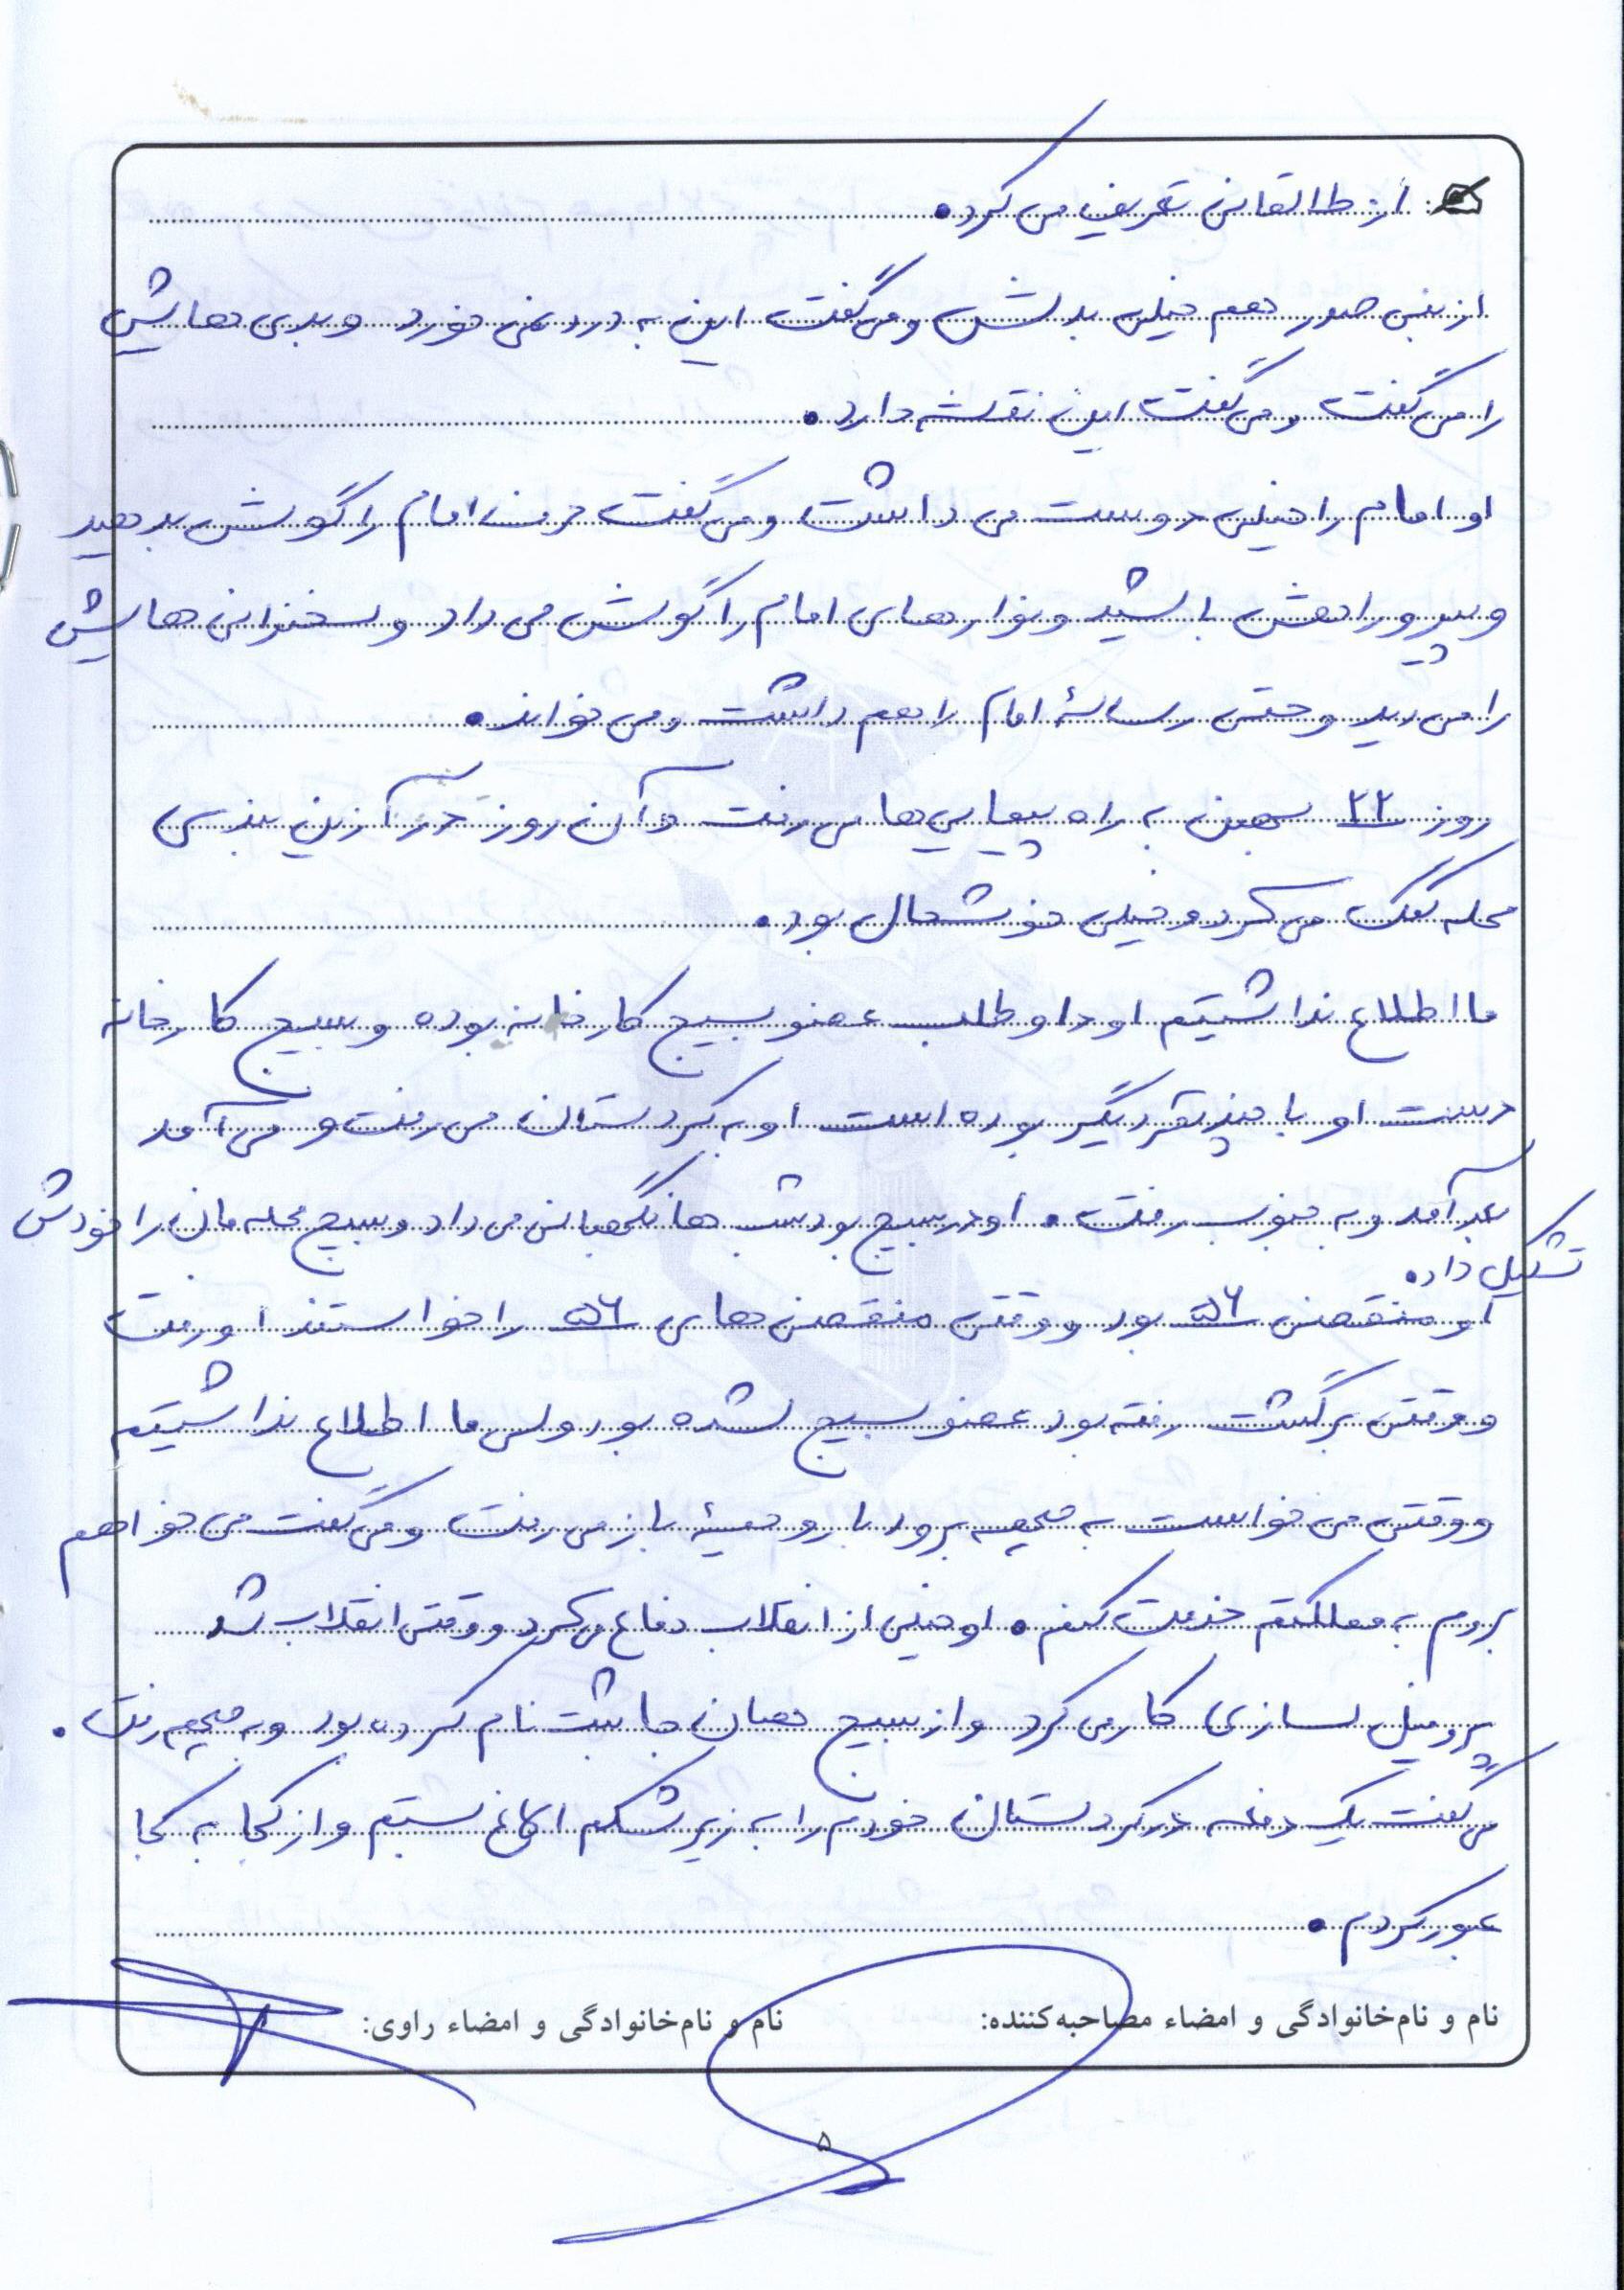 از طالقانی تعریف می کرد.
از بنی صدر هم خیلی بدش و می گفت این به درد نمی خورد و بدی هایش
را می گفت و می گفت این نقشه دارد.
او امام را خیلی دوست می داشت و می گفت حرف امام را گوش بدهید
و پیرو راهش باشید و نوارهای امام را گوش می داد و سخنرانی هایش
را می دید و حتی رسالۀ امام را هم داشت و می خواند.
روز ۲۲ بهمن به راه پیمایی ها می رفت و آن روز در آزین بندی
محله کمک می کرد و خیلی خوشحال بود.
ما اطلاع نداشتیم او داوطلب عضو بسیج کارخانه بوده و بسیج کارخانه
دست او با چند نفر دیگر بوده است او به کردستان می رفت و می آمد
بعد آمد و به جنوب رفت. او در بسیج بود شب ها نگهبانی می داد و بسیج محله مان را خودش
تشکیل داد.
او منقضی ۵۶ بود و وقتی منقضی های ۵۶ را خواستند او رفت
و وقتی برگشت رفته بود عضو بسیج شده بود ولی ما اطلاع نداشتیم
و وقتی می خواست به جبهه برود با روحیۀ باز می رفت و می گفت می خواهم
بروم به مملکتم خدمت کنم. او خیلی از انقلاب دفاع می کرد و وقتی انقلاب شد
پروفیل سازی کار می کرد و از بسیج همان جا ثبت نام کرده بود و به جبهه رفت.
می گفت یک دفعه در کردستان خودم را به زیر شکم الاغ بستم و از کجا به کجا
عبور کردم.
نام و نام‌خانوادگی و امضاء مصاحبه‌کننده: نام و نام‌خانوادگی و امضاء راوی:
۵